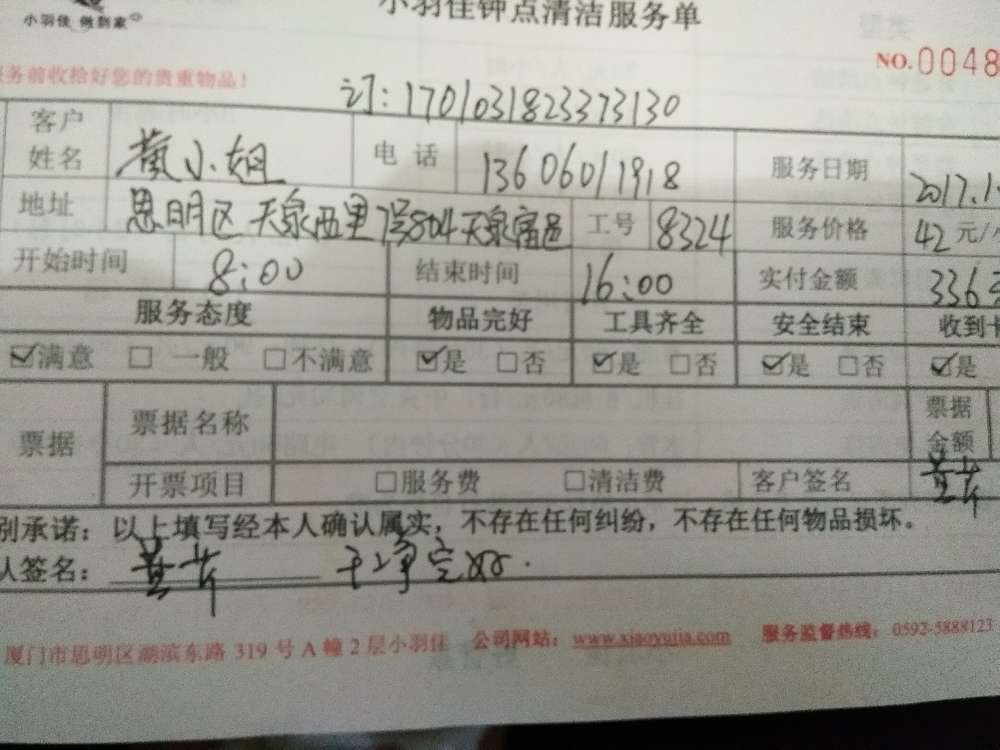 小羽佳 做到家
小羽佳钟点清洁服务单
NO. 0048
务前收拾好您的贵重物品!
订: 1701031823373130
客户姓名 黄小姐 电话 13606011918 服务日期 2017.1
地址 思明区天泉西里 804天泉 工号 8324 服务价格 42 元/
开始时间 8:00 结束时间 16:00 实付金额 336
服务态度 物品完好 工具齐全 安全结束 收到
☑满意 □一般 □不满意 ☑是 □否 ☑是 □否 ☑是 □否 ☑是
票据 票据名称 票据金额
开票项目 □服务费 □清洁费 客户签名 黄
别承诺: 以上填写经本人确认属实, 不存在任何纠纷, 不存在任何物品损坏。
人签名: 黄 干净完好.
厦门市思明区湖滨东路 319 号 A 幢 2 层小羽佳 公司网站: www.xiaoyujia.com 服务监督热线: 0592-5888123